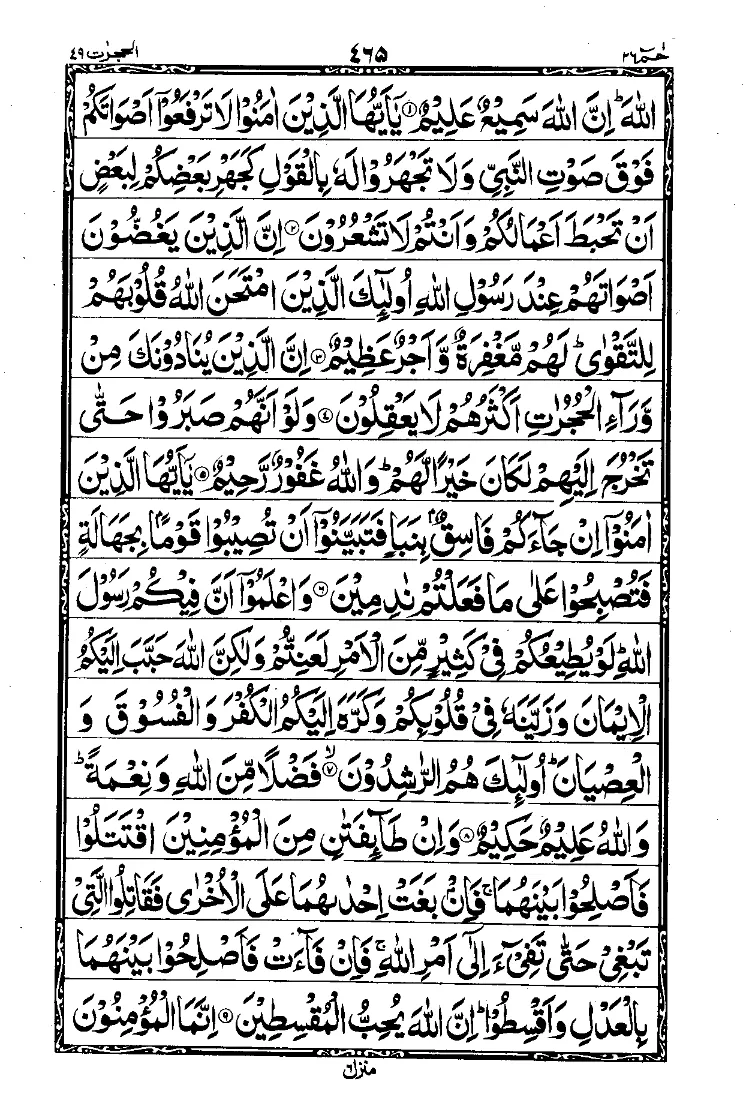 حٰمٓ ٢٦ ٤٦٥ الحجرٰت ٤٩
اللّٰهَ ؕ اِنَّ اللّٰهَ سَمِيْعٌ عَلِيْمٌ ﴿۱﴾ يٰۤاَيُّهَا الَّذِيْنَ اٰمَنُوْا لَا تَرْفَعُوْۤا اَصْوَاتَكُمْ
فَوْقَ صَوْتِ النَّبِيِّ وَلَا تَجْهَرُوْا لَهٗ بِالْقَوْلِ كَجَهْرِ بَعْضِكُمْ لِبَعْضٍ
اَنْ تَحْبَطَ اَعْمَالُكُمْ وَاَنْتُمْ لَا تَشْعُرُوْنَ ﴿۲﴾ اِنَّ الَّذِيْنَ يَغُضُّوْنَ
اَصْوَاتَهُمْ عِنْدَ رَسُوْلِ اللّٰهِ اُولٰٓئِكَ الَّذِيْنَ امْتَحَنَ اللّٰهُ قُلُوْبَهُمْ
لِلتَّقْوٰى ؕ لَهُمْ مَّغْفِرَةٌ وَّاَجْرٌ عَظِيْمٌ ﴿۳﴾ اِنَّ الَّذِيْنَ يُنَادُوْنَكَ مِنْ
وَّرَآءِ الْحُجُرٰتِ اَكْثَرُهُمْ لَا يَعْقِلُوْنَ ﴿٤﴾ وَلَوْ اَنَّهُمْ صَبَرُوْا حَتّٰى
تَخْرُجَ اِلَيْهِمْ لَكَانَ خَيْرًا لَّهُمْ ؕ وَاللّٰهُ غَفُوْرٌ رَّحِيْمٌ ﴿۵﴾ يٰۤاَيُّهَا الَّذِيْنَ
اٰمَنُوْۤا اِنْ جَآءَكُمْ فَاسِقٌۢ بِنَبَاٍ فَتَبَيَّنُوْۤا اَنْ تُصِيْبُوْا قَوْمًۢا بِجَهَالَةٍ
فَتُصْبِحُوْا عَلٰى مَا فَعَلْتُمْ نٰدِمِيْنَ ﴿۶﴾ وَاعْلَمُوْۤا اَنَّ فِيْكُمْ رَسُوْلَ
اللّٰهِ ؕ لَوْ يُطِيْعُكُمْ فِيْ كَثِيْرٍ مِّنَ الْاَمْرِ لَعَنِتُّمْ وَلٰكِنَّ اللّٰهَ حَبَّبَ اِلَيْكُمُ
الْاِيْمَانَ وَزَيَّنَهٗ فِيْ قُلُوْبِكُمْ وَكَرَّهَ اِلَيْكُمُ الْكُفْرَ وَالْفُسُوْقَ وَ
الْعِصْيَانَ ؕ اُولٰٓئِكَ هُمُ الرّٰشِدُوْنَ ﴿۷﴾ۙ فَضْلًا مِّنَ اللّٰهِ وَنِعْمَةً ؕ
وَاللّٰهُ عَلِيْمٌ حَكِيْمٌ ﴿۸﴾ وَاِنْ طَآئِفَتٰنِ مِنَ الْمُؤْمِنِيْنَ اقْتَتَلُوْا
فَاَصْلِحُوْا بَيْنَهُمَا ۚ فَاِنْۢ بَغَتْ اِحْدٰىهُمَا عَلَى الْاُخْرٰى فَقَاتِلُوا الَّتِيْ
تَبْغِيْ حَتّٰى تَفِيْٓءَ اِلٰٓى اَمْرِ اللّٰهِ ۚ فَاِنْ فَآءَتْ فَاَصْلِحُوْا بَيْنَهُمَا
بِالْعَدْلِ وَاَقْسِطُوْا ؕ اِنَّ اللّٰهَ يُحِبُّ الْمُقْسِطِيْنَ ﴿۹﴾ اِنَّمَا الْمُؤْمِنُوْنَ
منزل ٦